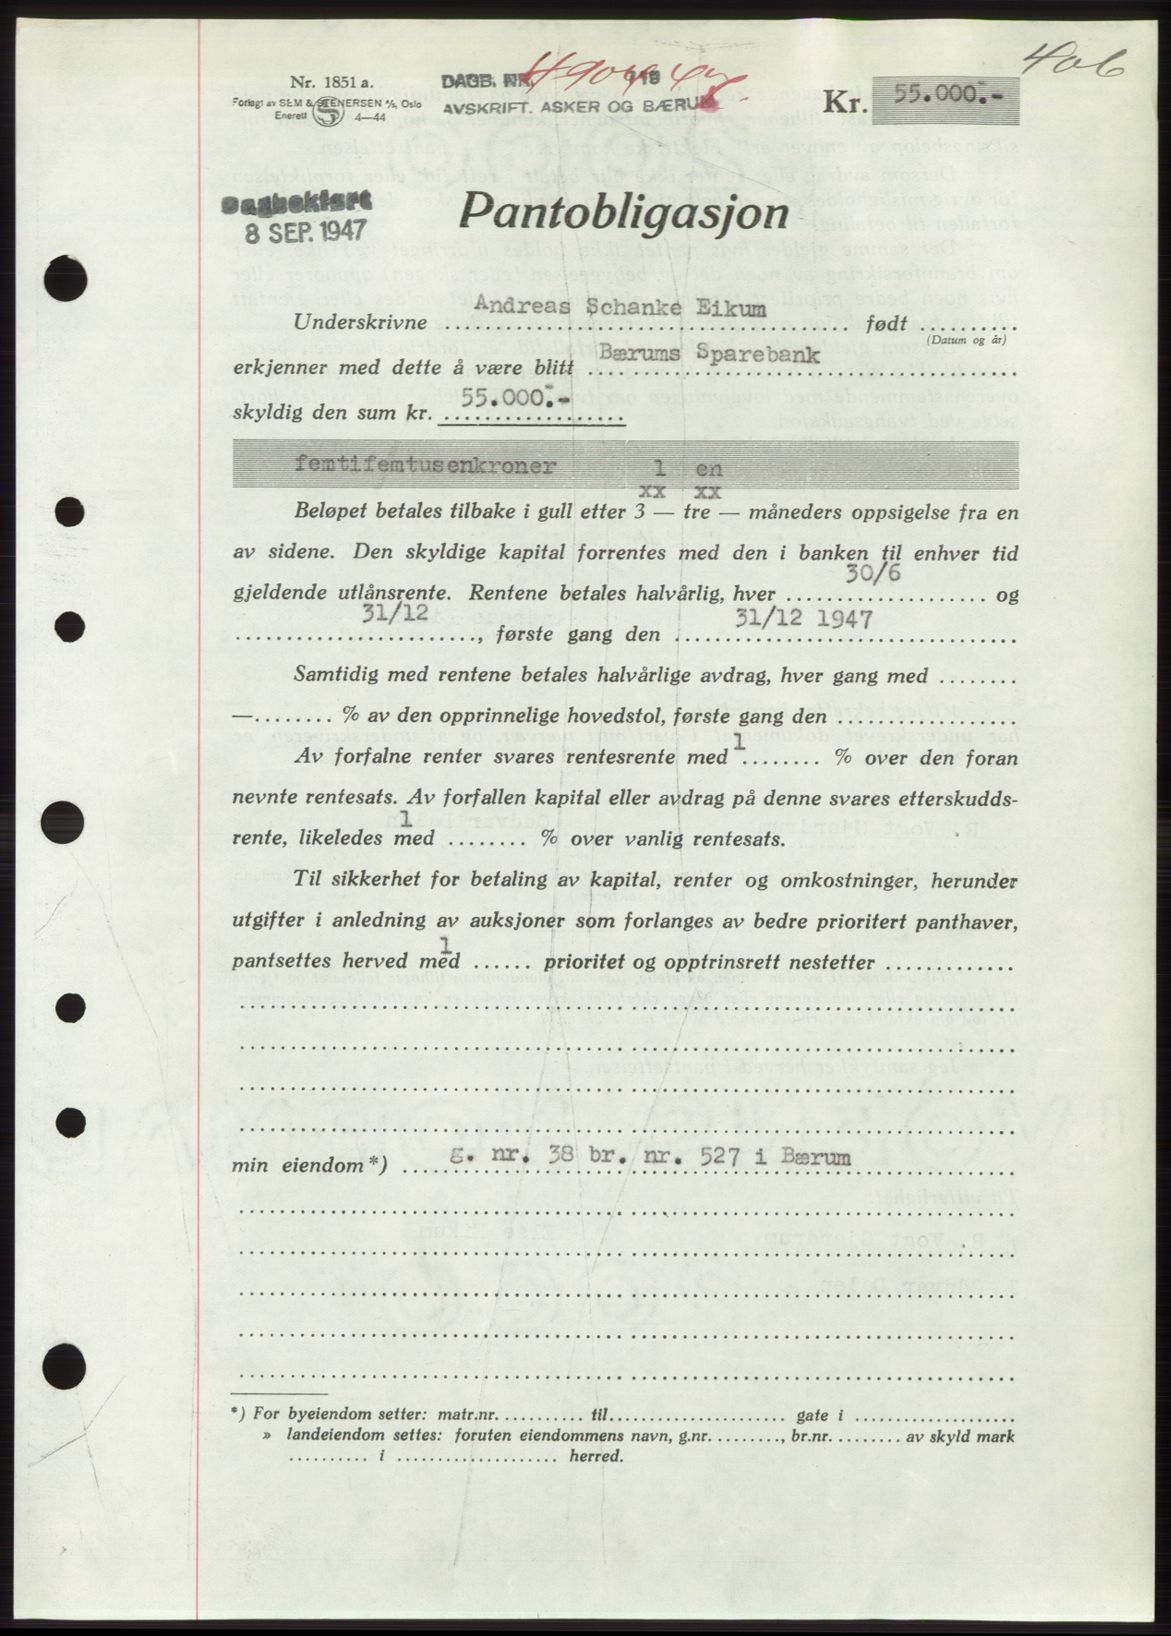 406
Nr. 1851 a.
Forlagt av SEM & STENERSEN A/S, Oslo
Enerett 4—44
DAGB. NR.
AVSKRIFT. ASKER OG BÆRUM
Kr. 55.000:-
Dagbokført
8 SEP. 1947
Pantobligasjon
Underskrivne Andreas Schanke Eikum født ..........
(Datum og år)
erkjenner med dette å være blitt Bærums Sparebank
skyldig den sum kr. 55.000:-
femtifemtusenkroner 1 en
xx xx
Beløpet betales tilbake i gull etter 3 — tre — måneders oppsigelse fra en
av sidene. Den skyldige kapital forrentes med den i banken til enhver tid
gjeldende utlånsrente. Rentene betales halvårlig, hver 30/6 og
31/12, første gang den 31/12 1947
Samtidig med rentene betales halvårlige avdrag, hver gang med ........
—........ % av den opprinnelige hovedstol, første gang den ..................
Av forfalne renter svares rentesrente med 1 ........ % over den foran
nevnte rentesats. Av forfallen kapital eller avdrag på denne svares etterskudds-
rente, likeledes med 1 ........ % over vanlig rentesats.
Til sikkerhet for betaling av kapital, renter og omkostninger, herunder
utgifter i anledning av auksjoner som forlanges av bedre prioritert panthaver,
pantsettes herved med 1 ...... prioritet og opptrinsrett nestetter .............
min eiendom*) g. nr. 38 br. nr. 527 i Bærum
*) For byeiendom setter: matr.nr. .......... til...................... gate i ....................
» landeiendom settes: foruten eiendommens navn, g.nr. ........., br.nr. ......... av skyld mark
.......... i .................... herred.